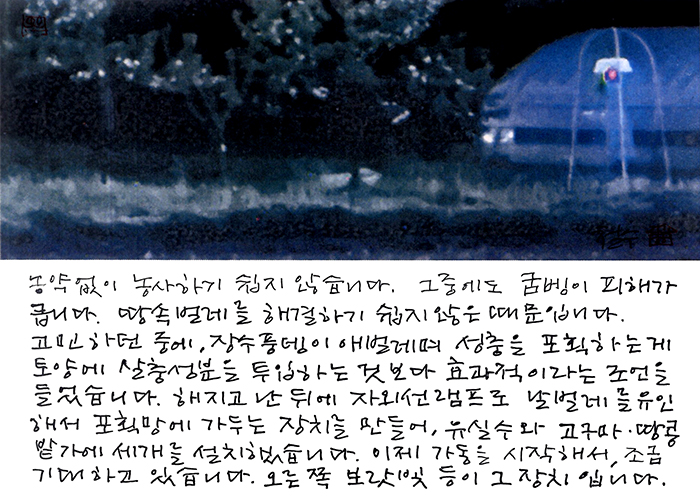 농약없이 농사하기 쉽지 않습니다. 그중에도 굼벵이 피해가
큽니다. 땅속벌레를 해결하기 쉽지않은 때문입니다.
고민하던 중에, 장수풍뎅이 애벌레며 성충을 포획하는게
토양에 살충성분을 투입하는 것보다 효과적이라는 조언을
들었습니다. 해지고 난 뒤에 자외선램프로 날벌레를유인
해서 포획망에 가두는 장치를 만들어, 유실수와 고구마·땅콩
밭가에 세개를 설치했습니다. 이제 가동을 시작해서, 조금
기대하고 있습니다. 오른쪽 보랏빛 등이 그 장치입니다.